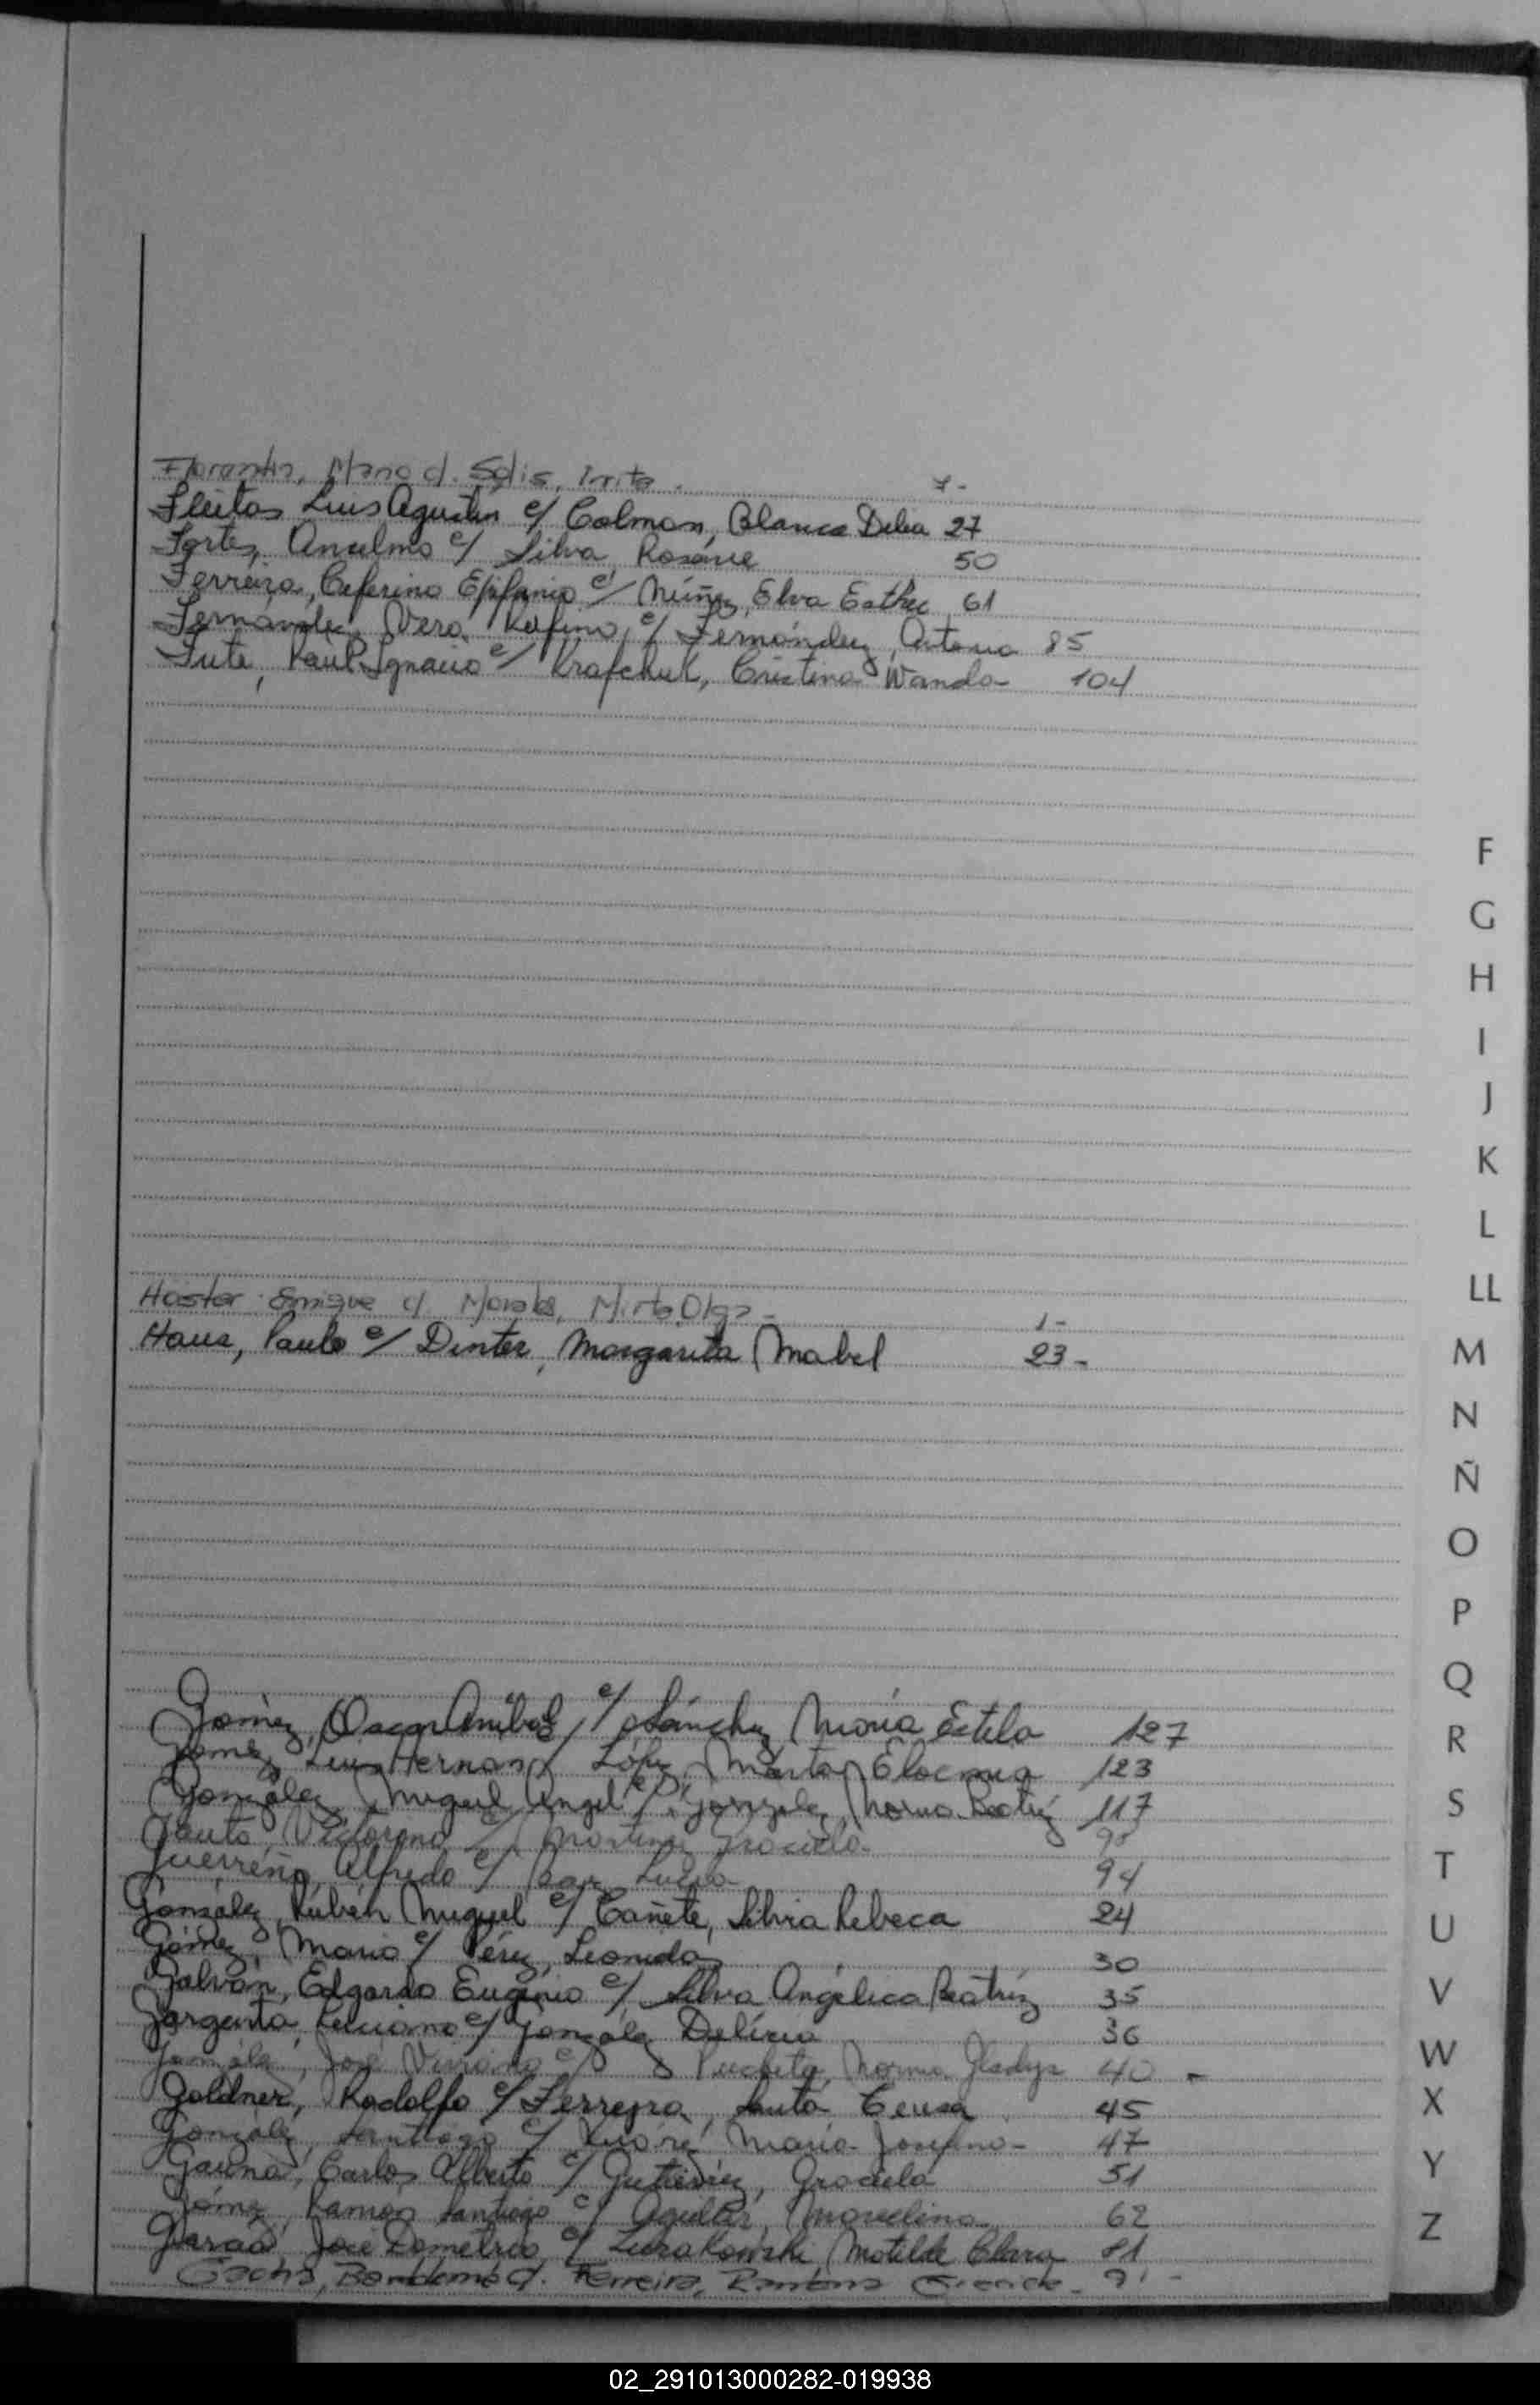 Florentin, Mario c/. Solis, Irita. 7-
Fleitas Luis Agustín c/ Colman, Blanca Delia 27
Fortes, Anselmo c/ Silva, Rosane 50
Ferreira, Ceferino Epifanio c/ Núñez, Elva Esther 61
Fernández Vera, Rufino, c/ Fernández, Antonia 85
Fute, Raúl Ignacio c/ Krafchuk, Cristina Wanda 104
F
G
H
I
J
K
L
LL
Enrique c/ Morales, Mirta Olga - 1-
Haus, Paulo c/ Dinter, Margarita Mabel 23-
M
N
Ñ
O
P
Q
Gómez, Oscar Aníbal, c/ Sánchez, María Estela 127
R
Gómez, Luis Hernan c/ López, Marta 123
González, Miguel Angel c/ González, Norma Beatriz 117
S
Gauto, Victorino c/ Martínez Graciela
Guerreño, Alfredo c/ Lucia 94
T
González, Rubén Miguel c/ Cañete, Silvia Rebeca 24
U
Gómez, Mario c/ Pérez, Leonida 30
Galván, Edgardo Eugenio c/ Silva Angélica Beatríz 35
V
Luciano c/ González Delicia 36
González, José Viviano c/ Pucheta, Norma Gladys 40 -
W
Goldner, Rodolfo c/ Ferreyra, Santa Ceusa 45
X
González, Santiago c/ María Josefina- 47
Gauna, Carlos Alberto c/ Gutiérrez, Graciela 51
Y
Gómez, Ramón Santiago c/ Aguilar, Marcelina 62
Z
García, José Demetrio c/ Matilde Clara 81
c/. Ferreira, Ramona
02_291013000282-019938